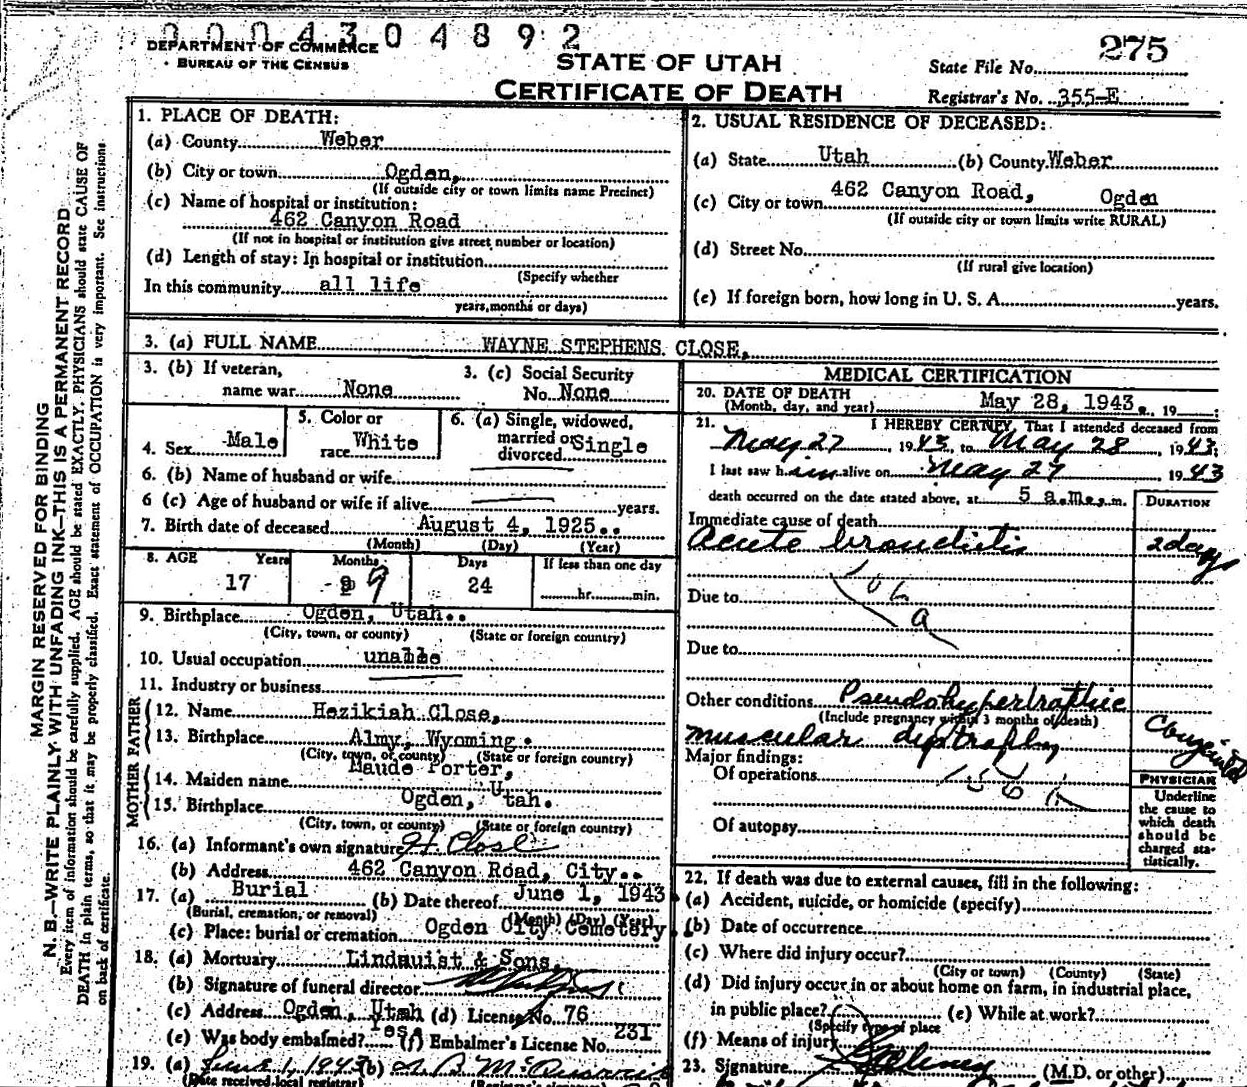 0004304892
DEPARTMENT OF COMMERCE
BUREAU OF THE CENSUS
STATE OF UTAH
CERTIFICATE OF DEATH
275
State File No.
Registrar's No. 355-E
MARGIN RESERVED FOR BINDING
N. B.—WRITE PLAINLY WITH UNFADING INK—THIS IS A PERMANENT RECORD
Every item of information should be carefully supplied. AGE should be stated EXACTLY. PHYSICIANS should state CAUSE OF
DEATH in plain terms, so that it may be properly classified. Exact statement of OCCUPATION is very important. See instructions
on back of certificate.
1. PLACE OF DEATH:
(a) County Weber
(b) City or town Ogden,
(If outside city or town limits name Precinct)
(c) Name of hospital or institution:
462 Canyon Road
(If not in hospital or institution give street number or location)
(d) Length of stay: In hospital or institution
(Specify whether
In this community all life
years, months or days)
2. USUAL RESIDENCE OF DECEASED:
(a) State Utah (b) County Weber
(c) City or town 462 Canyon Road, Ogden
(If outside city or town limits write RURAL)
(d) Street No.
(If rural give location)
(e) If foreign born, how long in U. S. A. years.
3. (a) FULL NAME WAYNE STEPHENS CLOSE,
3. (b) If veteran,
name war None
3. (c) Social Security
No. None
4. Sex Male
5. Color or
race White
6. (a) Single, widowed,
married or
divorced Single
6. (b) Name of husband or wife
6 (c) Age of husband or wife if alive years.
7. Birth date of deceased August 4, 1925..
(Month) (Day) (Year)
8. AGE Years Months Days If less than one day
17 9 24 hr. min.
9. Birthplace Ogden, Utah..
(City, town, or county) (State or foreign country)
10. Usual occupation unable
11. Industry or business
MOTHER FATHER
12. Name Hezikiah Close,
13. Birthplace Almy, Wyoming.
(City, town, or county) (State or foreign country)
14. Maiden name Maude Porter,
15. Birthplace Ogden, Utah.
(City, town, or county) (State or foreign country)
16. (a) Informant's own signature H. Close
(b) Address 462 Canyon Road, City..
17. (a) Burial (b) Date thereof June 1, 1943
(Burial, cremation, or removal) (Month) (Day) (Year)
(c) Place: burial or cremation Ogden City Cemetery.
18. (a) Mortuary Lindquist & Sons,
(b) Signature of funeral director
(c) Address Ogden, Utah (d) License No. 76
(e) Was body embalmed? Yes. (f) Embalmer's License No. 231
19. (a) June 1, 1943 (b)
(Date received local registrar) (Registrar's signature)
MEDICAL CERTIFICATION
20. DATE OF DEATH
(Month, day, and year) May 28, 1943., 19
21. I HEREBY CERTIFY, That I attended deceased from
May 27, 1943, to May 28, 1943;
I last saw him alive on May 27 1943
death occurred on the date stated above, at 5 a.m., m.
DURATION
Immediate cause of death
Acute bronchitis 2 days
Due to
106
a
Due to
Other conditions Pseudohypertrophic
(Include pregnancy within 3 months of death)
muscular dystrophy Congenital
Major findings:
Of operations
Of autopsy
PHYSICIAN
Underline
the cause to
which death
should be
charged sta-
tistically.
22. If death was due to external causes, fill in the following:
(a) Accident, suicide, or homicide (specify)
(b) Date of occurrence
(c) Where did injury occur?
(City or town) (County) (State)
(d) Did injury occur in or about home on farm, in industrial place,
in public place? (e) While at work?
(Specify type of place
(f) Means of injury
23. Signature (M.D. or other)